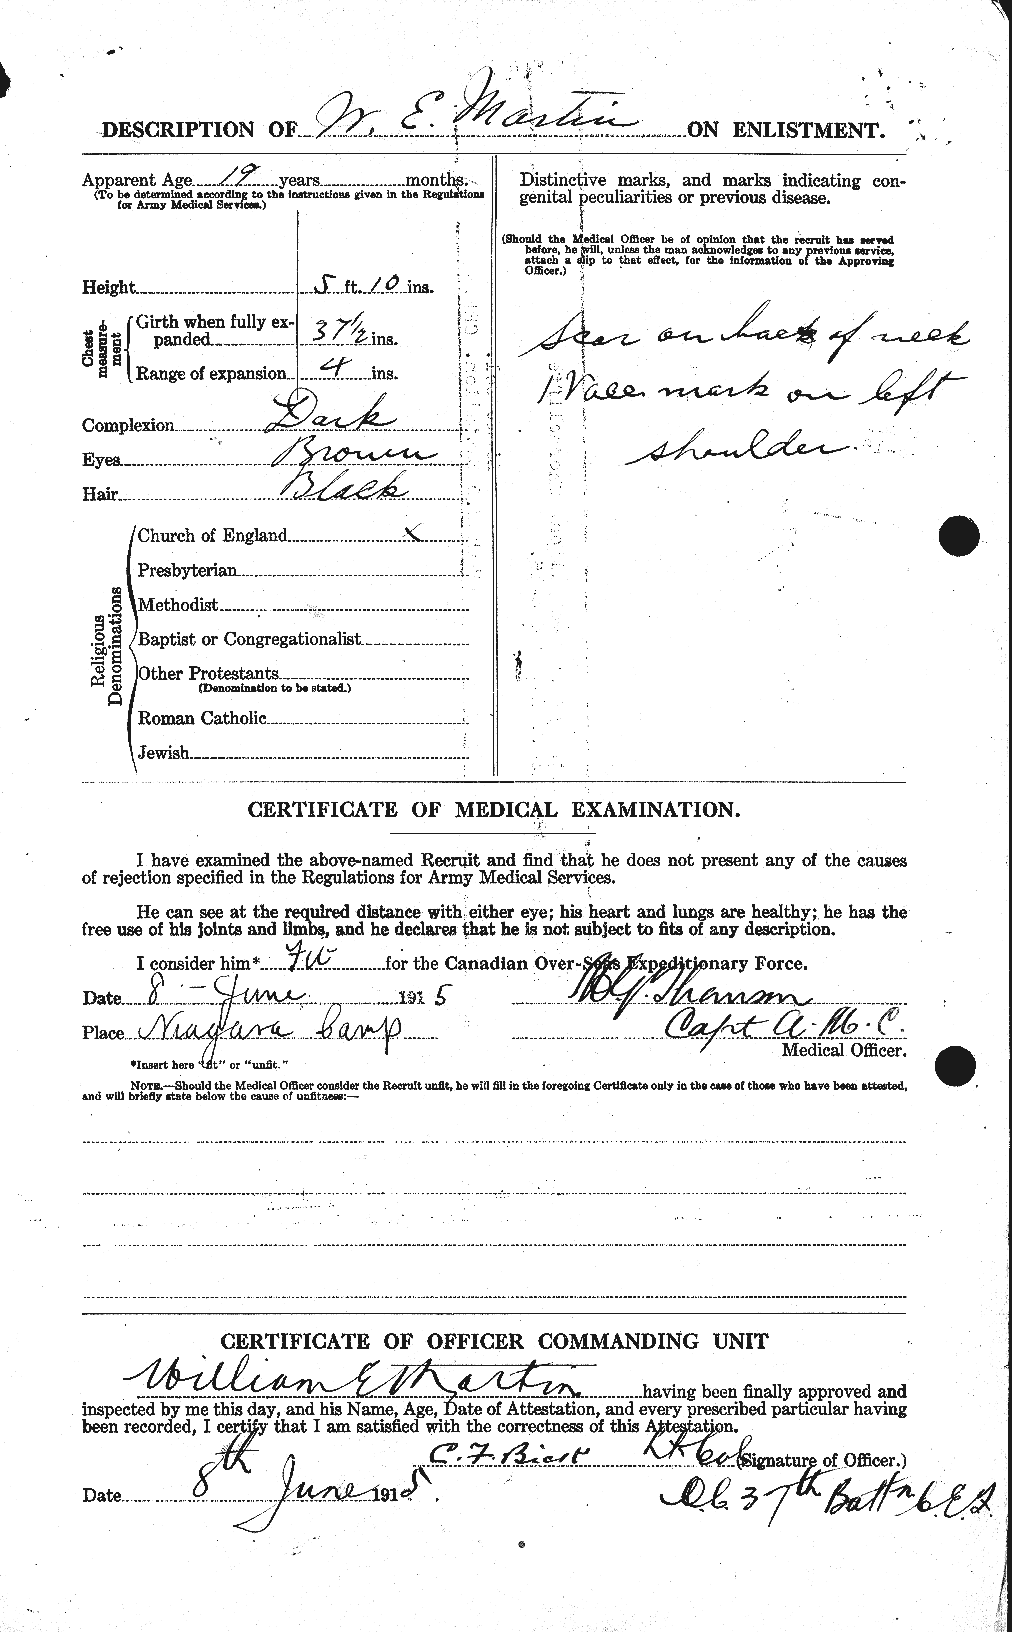 DESCRIPTION OF W. E. Martin ON ENLISTMENT.
Apparent Age 19 years months.
(To be determined according to the instructions given in the Regulations
for Army Medical Services.)
Height 5 ft. 10 ins.
Chest measurement
Girth when fully ex-
panded 37 1/2 ins.
Range of expansion 4 ins.
Complexion Dark
Eyes Brown
Hair Black
Religious Denominations
Church of England X
Presbyterian
Methodist
Baptist or Congregationalist
Other Protestants
(Denomination to be stated.)
Roman Catholic
Jewish
Distinctive marks, and marks indicating con-
genital peculiarities or previous disease.
(Should the Medical Officer be of opinion that the recruit has served
before, he will, unless the man acknowledges to any previous service,
attach a slip to that effect, for the information of the Approving
Officer.)
Scar on back of neck
1 Vacc. mark on left
shoulder.
CERTIFICATE OF MEDICAL EXAMINATION.
I have examined the above-named Recruit and find that he does not present any of the causes
of rejection specified in the Regulations for Army Medical Services.
He can see at the required distance with either eye; his heart and lungs are healthy; he has the
free use of his joints and limbs, and he declares that he is not subject to fits of any description.
I consider him* Fit for the Canadian Over-Seas Expeditionary Force.
Date 8 - June 1915
Place Niagara Camp Capt A. M. C.
Medical Officer.
*Insert here "fit" or "unfit."
NOTE.—Should the Medical Officer consider the Recruit unfit, he will fill in the foregoing Certificate only in the case of those who have been attested,
and will briefly state below the cause of unfitness:—
CERTIFICATE OF OFFICER COMMANDING UNIT
William E Martin having been finally approved and
inspected by me this day, and his Name, Age, Date of Attestation, and every prescribed particular having
been recorded, I certify that I am satisfied with the correctness of this Attestation.
C. F. Bick Lt Col (Signature of Officer.)
Date 8th June 1915. O.C. 37th Battn C.E.F.